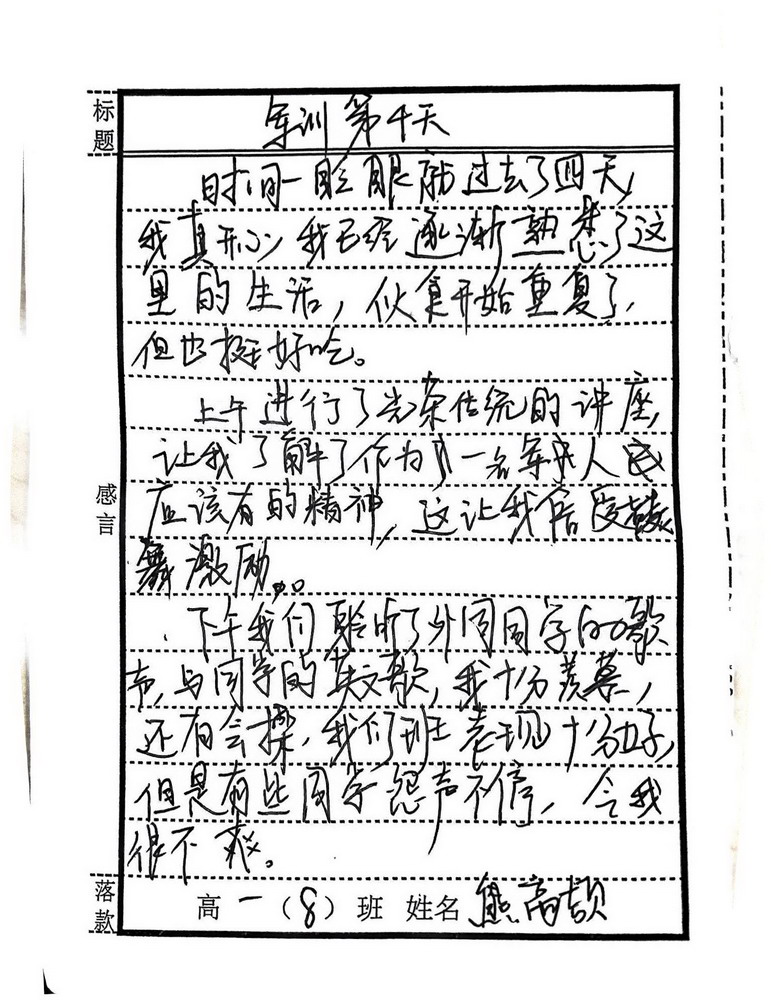 标题
军训第4天
时间一眨眼就过去了四天,
我真开心我已经逐渐熟悉了这
里的生活,伙食开始重复了,
但也挺好吃。
上午进行了光荣传统的讲座,
让我了解了作为一名军人民
感言
应该有的精神,这让我倍受鼓
舞激励。
下午我们聆听了外国同学的歌
声,与同学的英文歌,我十分羡慕,
还有会操,我们班表现十分好,
但是有些同学怨声不停,令我
很不爽。
落款
高一(8)班 姓名 熊高